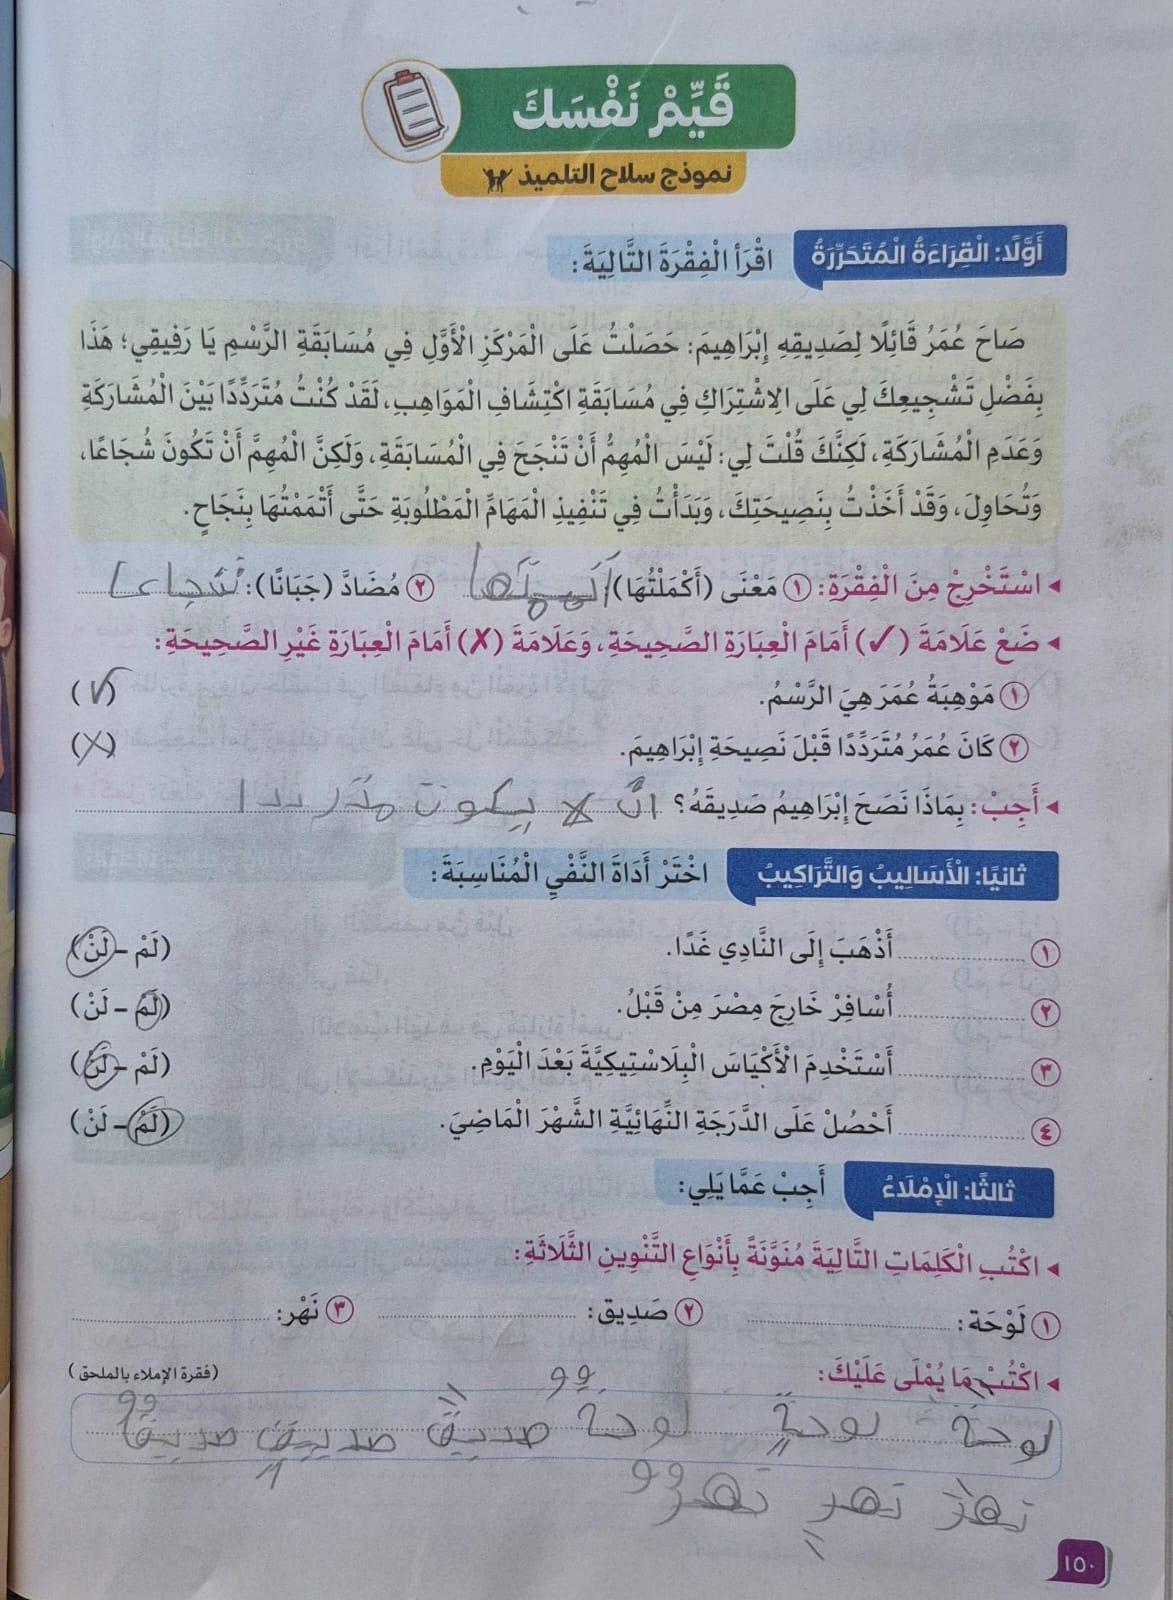 قَيِّمْ نَفْسَكَ
نموذج سلاح التلميذ
أَوَّلًا: الْقِرَاءَةُ الْمُتَحَرِّرَةُ اقْرَأ الْفِقْرَةَ التَّالِيَةَ:
صَاحَ عُمَرُ قَائِلًا لِصَدِيقِهِ إِبْرَاهِيمَ: حَصَلْتُ عَلَى الْمَرْكَزِ الْأَوَّلِ فِي مُسَابَقَةِ الرَّسْمِ يَا رَفِيقِي؛ هَذَا
بِفَضْلِ تَشْجِيعِكَ لِي عَلَى الِاشْتِرَاكِ فِي مُسَابَقَةِ اكْتِشَافِ الْمَوَاهِبِ، لَقَدْ كُنْتُ مُتَرَدِّدًا بَيْنَ الْمُشَارَكَةِ
وَعَدَمِ الْمُشَارَكَةِ، لَكِنَّكَ قُلْتَ لِي: لَيْسَ الْمُهِمُّ أَنْ تَنْجَحَ فِي الْمُسَابَقَةِ، وَلَكِنَّ الْمُهِمَّ أَنْ تَكُونَ شُجَاعًا،
وَتُحَاوِلَ، وَقَدْ أَخَذْتُ بِنَصِيحَتِكَ، وَبَدَأْتُ فِي تَنْفِيذِ الْمَهَامِّ الْمَطْلُوبَةِ حَتَّى أَتْمَمْتُهَا بِنَجَاحٍ.
◂ اسْتَخْرِجْ مِنَ الْفِقْرَةِ: ① مَعْنَى (أَكْمَلْتُهَا): ② مُضَادَّ (جَبَانًا): شجاعا
◂ ضَعْ عَلَامَةَ (✓) أَمَامَ الْعِبَارَةِ الصَّحِيحَةِ، وَعَلَامَةَ (✗) أَمَامَ الْعِبَارَةِ غَيْرِ الصَّحِيحَةِ:
① مَوْهِبَةُ عُمَرَ هِيَ الرَّسْمُ. (✓)
② كَانَ عُمَرُ مُتَرَدِّدًا قَبْلَ نَصِيحَةِ إِبْرَاهِيمَ. (✗)
◂ أَجِبْ: بِمَاذَا نَصَحَ إِبْرَاهِيمُ صَدِيقَهُ؟ ان لا يكون
ثانيًا: الْأَسَالِيبُ وَالتَّرَاكِيبُ اخْتَرْ أَدَاةَ النَّفْيِ الْمُنَاسِبَةَ:
① ........ أَذْهَبَ إِلَى النَّادِي غَدًا. (لَمْ - لَنْ)
② ........ أُسَافِرْ خَارِجَ مِصْرَ مِنْ قَبْلُ. (لَمْ - لَنْ)
③ ........ أَسْتَخْدِمَ الْأَكْيَاسَ الْبِلَاسْتِيكِيَّةَ بَعْدَ الْيَوْمِ. (لَمْ - لَنْ)
④ ........ أَحْصُلْ عَلَى الدَّرَجَةِ النِّهَائِيَّةِ الشَّهْرَ الْمَاضِيَ. (لَمْ - لَنْ)
ثالثًا: الْإِمْلَاءُ أَجِبْ عَمَّا يَلِي:
◂ اكْتُبِ الْكَلِمَاتِ التَّالِيَةَ مُنَوَّنَةً بِأَنْوَاعِ التَّنْوِينِ الثَّلَاثَةِ:
① لَوْحَة: ........ ② صَدِيق: ........ ③ نَهْر: ........
◂ اكْتُبْ مَا يُمْلَى عَلَيْكَ: (فقرة الإملاء بالملحق)
لوحةً لوحةٍ لوحةٌ صديقً صديقٍ صديقٌ
نهرً نهرٍ نهرٌ
١٥٠